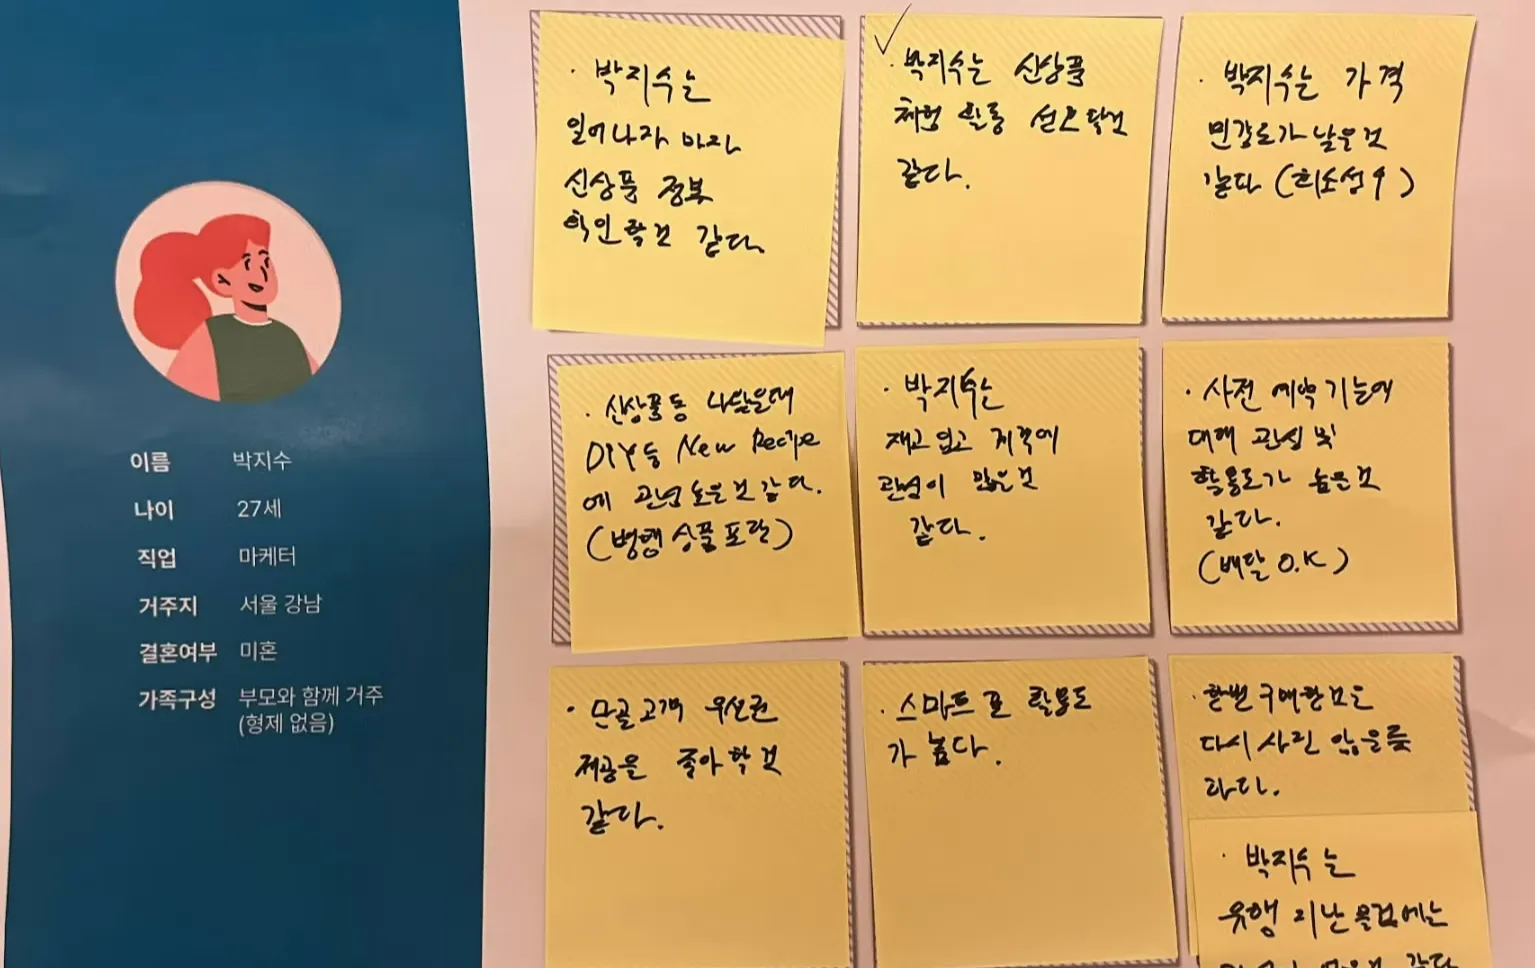 이름 박지수
나이 27세
직업 마케터
거주지 서울 강남
결혼여부 미혼
가족구성 부모와 함께 거주
(형제 없음)
· 박지수는
일어나자 마자
신상품 정보
확인 할것 같다.
· 박지수는 신상품
체험 활동 선호 할것
같다.
· 박지수는 가격
민감도가 낮을 것
같다 (희소성↑)
· 신상품 등 나왔을 때
DIY 등 New Recipe
에 관심 높을 것 같다.
(병행 상품 포함)
· 박지수는
재고 업고 지극에
관심이 많은 것
같다.
· 사전 예약 기능에
대해 관심 및
활용도가 높은 것
같다.
(배달 O.K)
· 단골고객 우선권
제공을 좋아 할 것
같다.
· 스마트 폰 활용도
가 높다.
· 한번 구매한 것은
다시 사진 않을 듯
하다.
· 박지수는
유행 지난 물건에는
같다